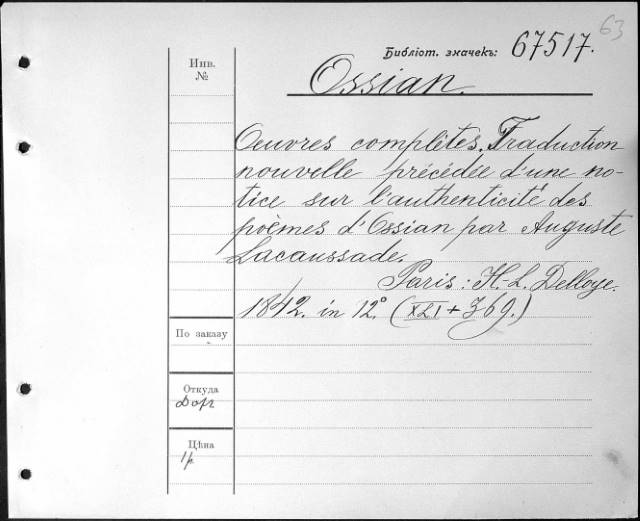 63
Библіот. значекъ: 67517.
Ossian.
Инв.
№
Oeuvres complètes. Traduction
nouvelle précédée d'une no-
tice sur l'authenticité des
poèmes d'Ossian par Auguste
Lacaussade.
Paris: H. L. Delloye.
1842. in 12° (XLI + 369.)
По заказу
Откуда
Цѣна
1р